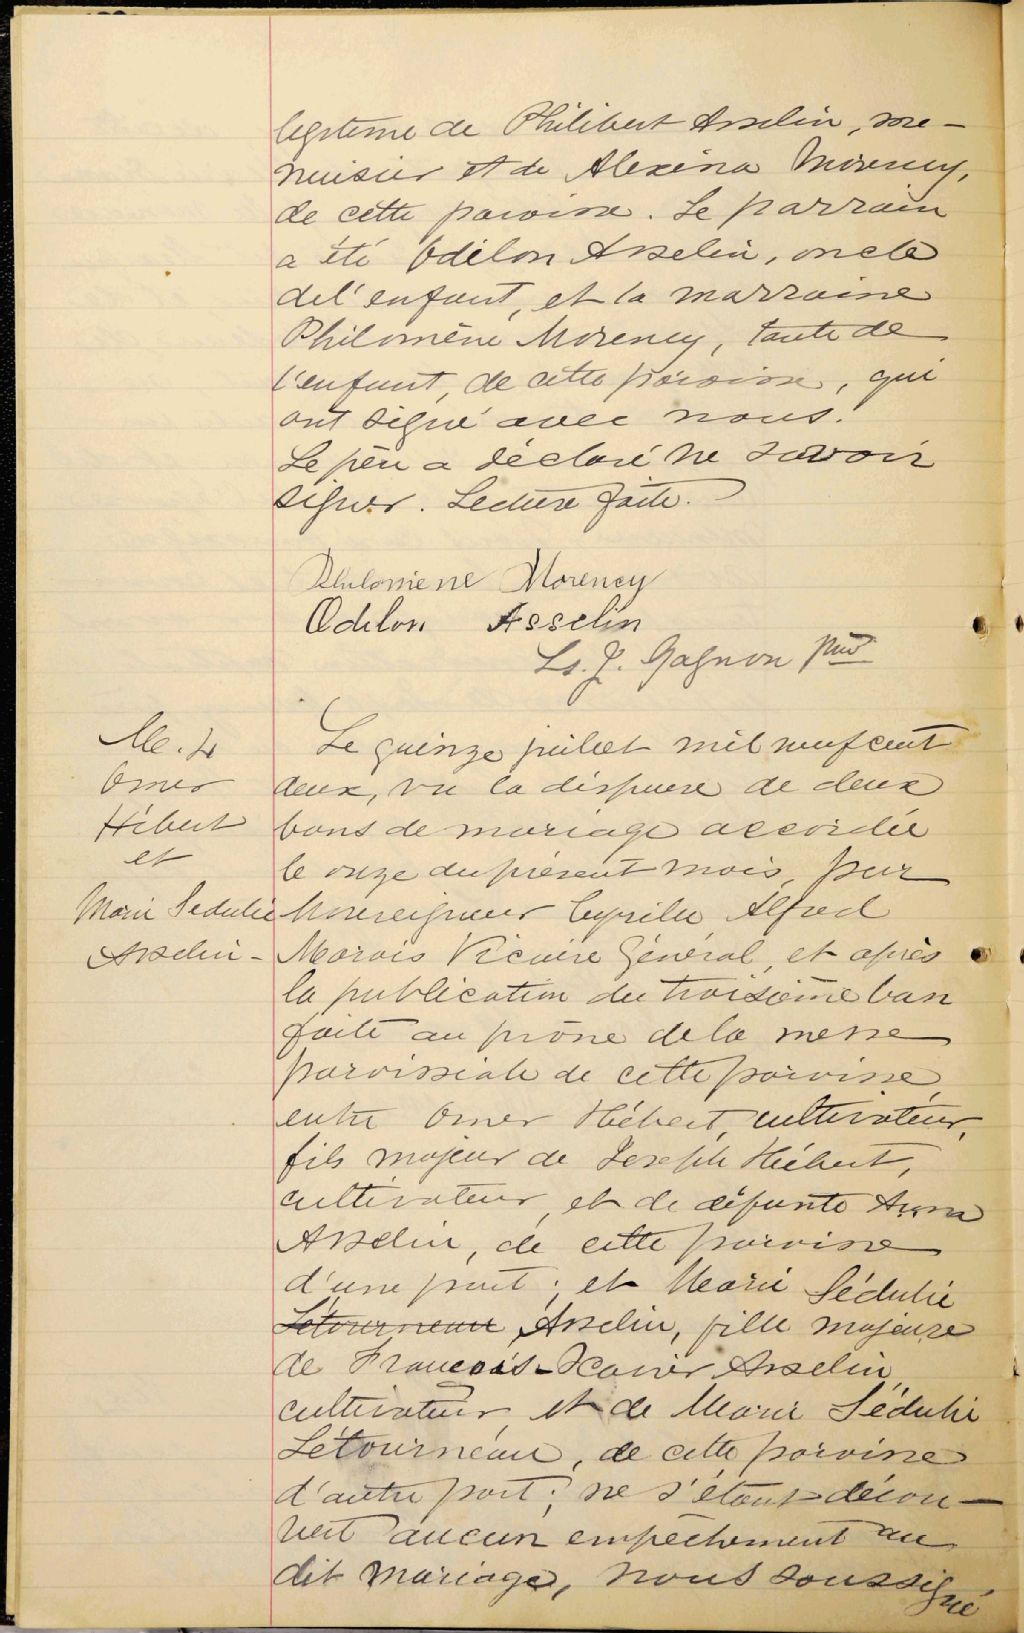 legitime de Philibert Asselin, me-
nuisier et de Alexina Morency,
de cette paroisse. Le parrain
a été Odilon Asselin, oncle
de l'enfant, et la marraine
Philomène Morency, tante de
l'enfant, de cette paroisse, qui
ont signé avec nous.
Le père a déclaré ne savoir
signer. Lecture faite.
Philomene Morency
Odilon Asselin
Ls. J. Gagnon Ptre
M. 4
Omer
Hébert
et
Marie Sedulie
Asselin -
Le quinze juillet mil neuf cent
deux, vu la dispense de deux
bans de mariage accordée
le onze du présent mois, par
Monseigneur Cyrille Alfred
Marois Vicaire Général, et après
la publication du troisième ban
faite au prône de la messe
paroissiale de cette paroisse,
entre Omer Hébert, cultivateur,
fils majeur de Joseph Hébert,
cultivateur, et de défunte Anna
Asselin, de cette paroisse
d'une part; et Marie Sédulie
Létourneau Asselin, fille majeure
de François-Xavier Asselin,
cultivateur et de Marie Sédulie
Létourneau, de cette paroisse
d'autre part; ne s'étant décou-
vert aucun empêchement au
dit mariage, nous soussigné